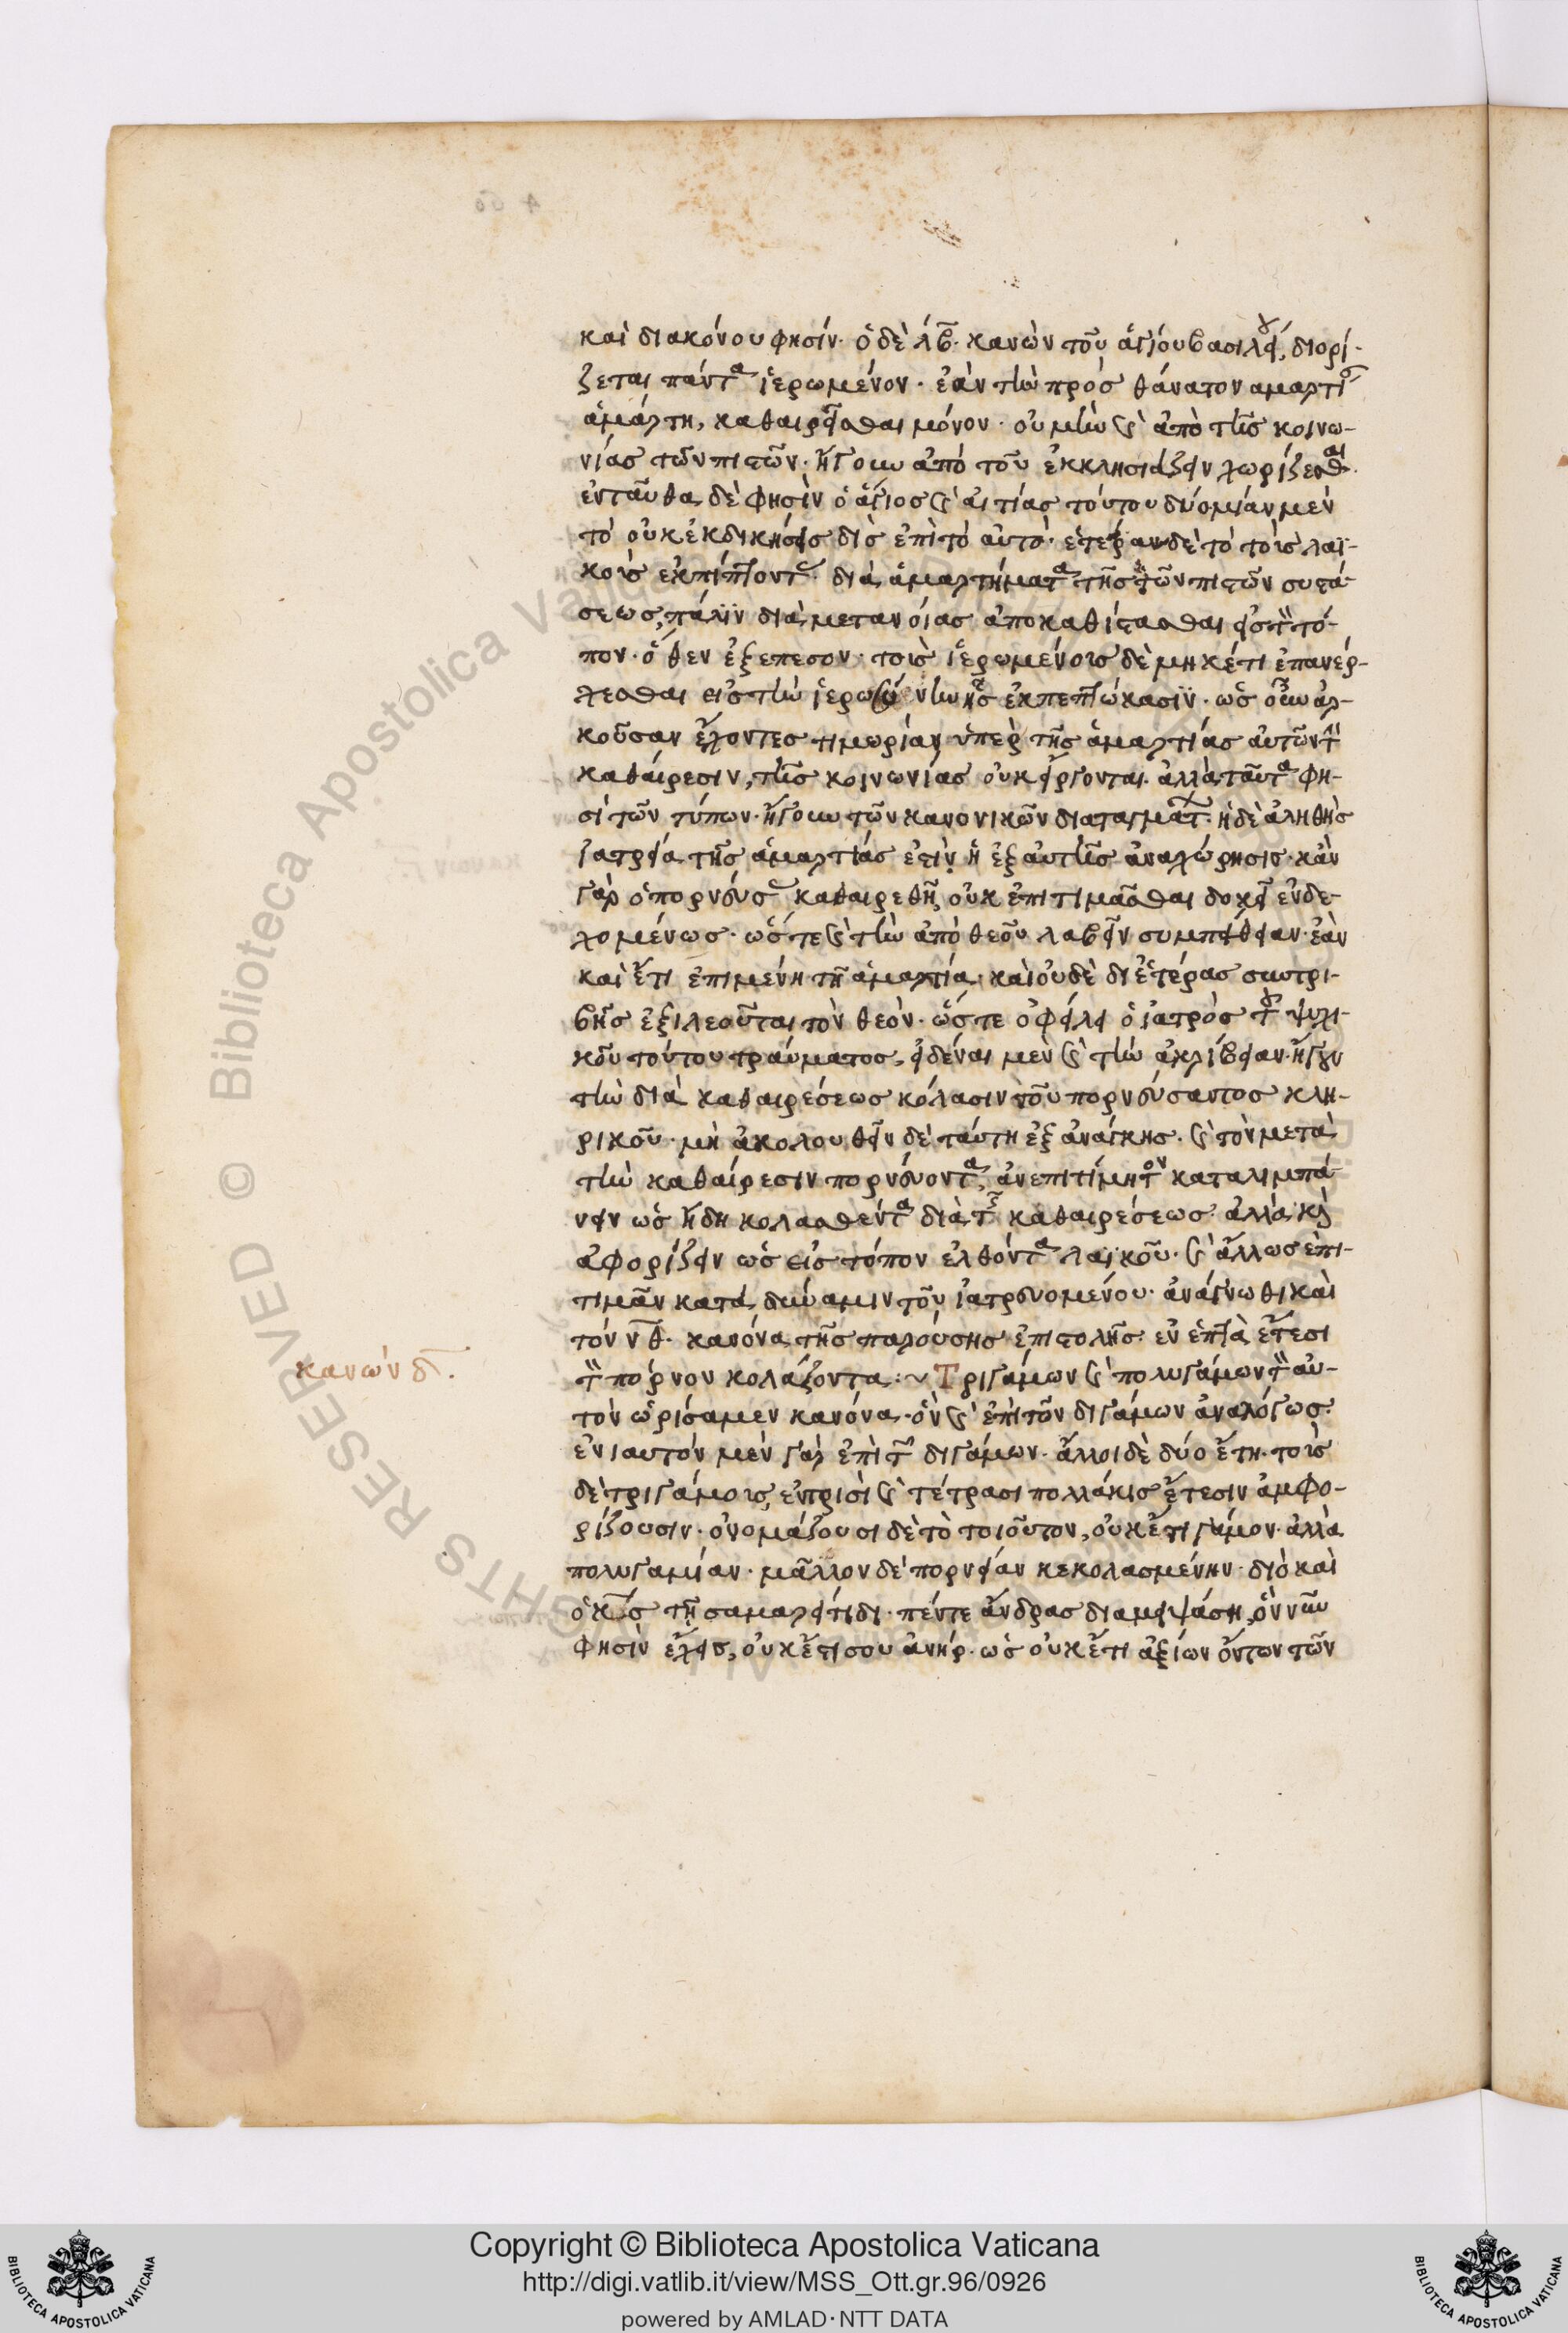 καὶ διακόνου φησίν· ὁ δὲ λβ· κανὼν τοῦ ἁγίου βασιλείου, διορί-
ζεται πάντα ἱερωμένον· ἐὰν τὴν πρὸς θάνατον αμαρτίαν
ἁμάρτη, καθαιρεῖσθαι μόνον· οὐ μὴν καὶ ἀπὸ τῆς κοινω-
νίας τῶν πιστῶν· ἤγουν ἀπὸ τοῦ ἐκκλησιάζειν χωρίζεσθαι·
ἐνταῦθα δὲ φησὶν ὁ ἅγιος καὶ αἰτίας τούτου δύο μίαν μὲν
τὸ οὐκ ἐκδικήσεις δὶς ἐπὶ τὸ αὐτό· ἑτέραν δὲ τὸ τοὶς λαϊ-
κοὶς ἐκπίπτοντας διὰ ἁμαρτήματα τῆς τῶν πιστῶν συστά-
σεως, πάλϊν διὰ μετανοίας ἀποκαθίστασθαι εἰς τὸν τό-
πον· ὅθεν ἐξέπεσον· τοῖς ἱερωμένοις δὲ μηκέτι ἐπανέρ-
χεσθαι εἰς τὴν ἱερωσύνην ἧς ἐκπεπτώκασϊν· ὡς οὖν ἀρ-
κοῦσαν ἔχοντες τιμωρίαν ὑπὲρ τῆς ἁμαρτίας αὐτῶν τὴν
καθαίρεσιν, τῆς κοινωνίας οὐκ εἴργονται. ἀλλὰ ταῦτα φη-
σὶ τῶν τύπων· ἤγουν τῶν κανονικῶν διαταγμάτων· ἡ δὲ ἀληθὴς
ἰατρεία τῆς ἁμαρτίας ἐστὶν ἡ ἐξ αὐτῆς ἀναχώρησις· κἂν
γὰρ ὁ πορνεύσας καθαιρεθῆ, οὐκ ἐπιτιμᾶσθαι δοκεῖ ἐνδε-
χομένως· ὥστε καὶ τὴν ἀπὸ θεοῦ λαβεῖν συμπάθειαν· ἐὰν
καὶ ἔτι ἐπιμένη τῆ ἁμαρτία· καὶ οὐδὲ δι ἑτέρας συντρι-
βῆς ἐξιλεοῦται τὸν θεόν· ὥστε ὀφείλει ὁ ἰατρὸς τοῦ ψυχι-
κοῦ τούτου τραύματος, εἰδέναι μὲν καὶ τὴν ἀκρίβειαν· ἤγουν
τὴν διὰ καθαιρέσεως κόλασιν τοῦ πορνεύσαντος κλη-
ρικοῦ· μὴ ἀκολουθεῖν δὲ ταύτη ἐξ ἀνάγκης· καὶ τὸν μετὰ
τὴν καθαίρεσιν πορνεύοντα, ἀνεπιτίμητον καταλιμπά-
νειν ὡς ἤδη κολασθέντα διὰ τῆς καθαιρέσεως· ἀλλὰ καὶ
ἀφορίζειν ὡς εἰς τόπον ἐλθόντα λαϊκοῦ· καὶ ἄλλως ἐπι-
τιμᾶν κατὰ δύναμιν τοῦ ἰατρευομένου· ἀνάγνωθι καὶ
τὸν νθ· κανόνα τῆς παρούσης ἐπιστολῆς· ἐν ἑπτὰ ἔτεσι
τὸν πόρνον κολάζοντα :~ Τριγάμων καὶ πολυγάμων τὸν αὐ-
κανὼν δ.
τὸν ὡρίσαμεν κανόνα· ὃν καὶ ἐπὶ τῶν διγάμων ἀναλόγως·
ἐνιαυτὸν μὲν γὰρ ἐπὶ τῶν διγάμων· ἄλλοι δὲ δύο ἔτη· τοῖς
δὲ τριγάμοις, ἐν τρισὶ καὶ τέτρασι πολλάκις ἔτεσιν ἀμφο-
ρίζουσιν· ὀνομάζουσι δὲ τὸ τοιοῦτον, οὐκ ἔτι γάμον· ἀλλὰ
πολυγαμίαν· μᾶλλον δὲ πορνείαν κεκολασμένην· διὸ καὶ
ὁ κύριος τῆ σαμαρείτιδι· πέντε ἄνδρας διαμειψάση, ὃν νῦν
φησὶν ἔχεις, οὐκ ἔστι σου ἀνήρ· ὡς οὐκ ἔτι ἀξίων ὄντων τῶν
Copyright © Biblioteca Apostolica Vaticana
http://digi.vatlib.it/view/MSS_Ott.gr.96/0926
powered by AMLAD·NTT DATA